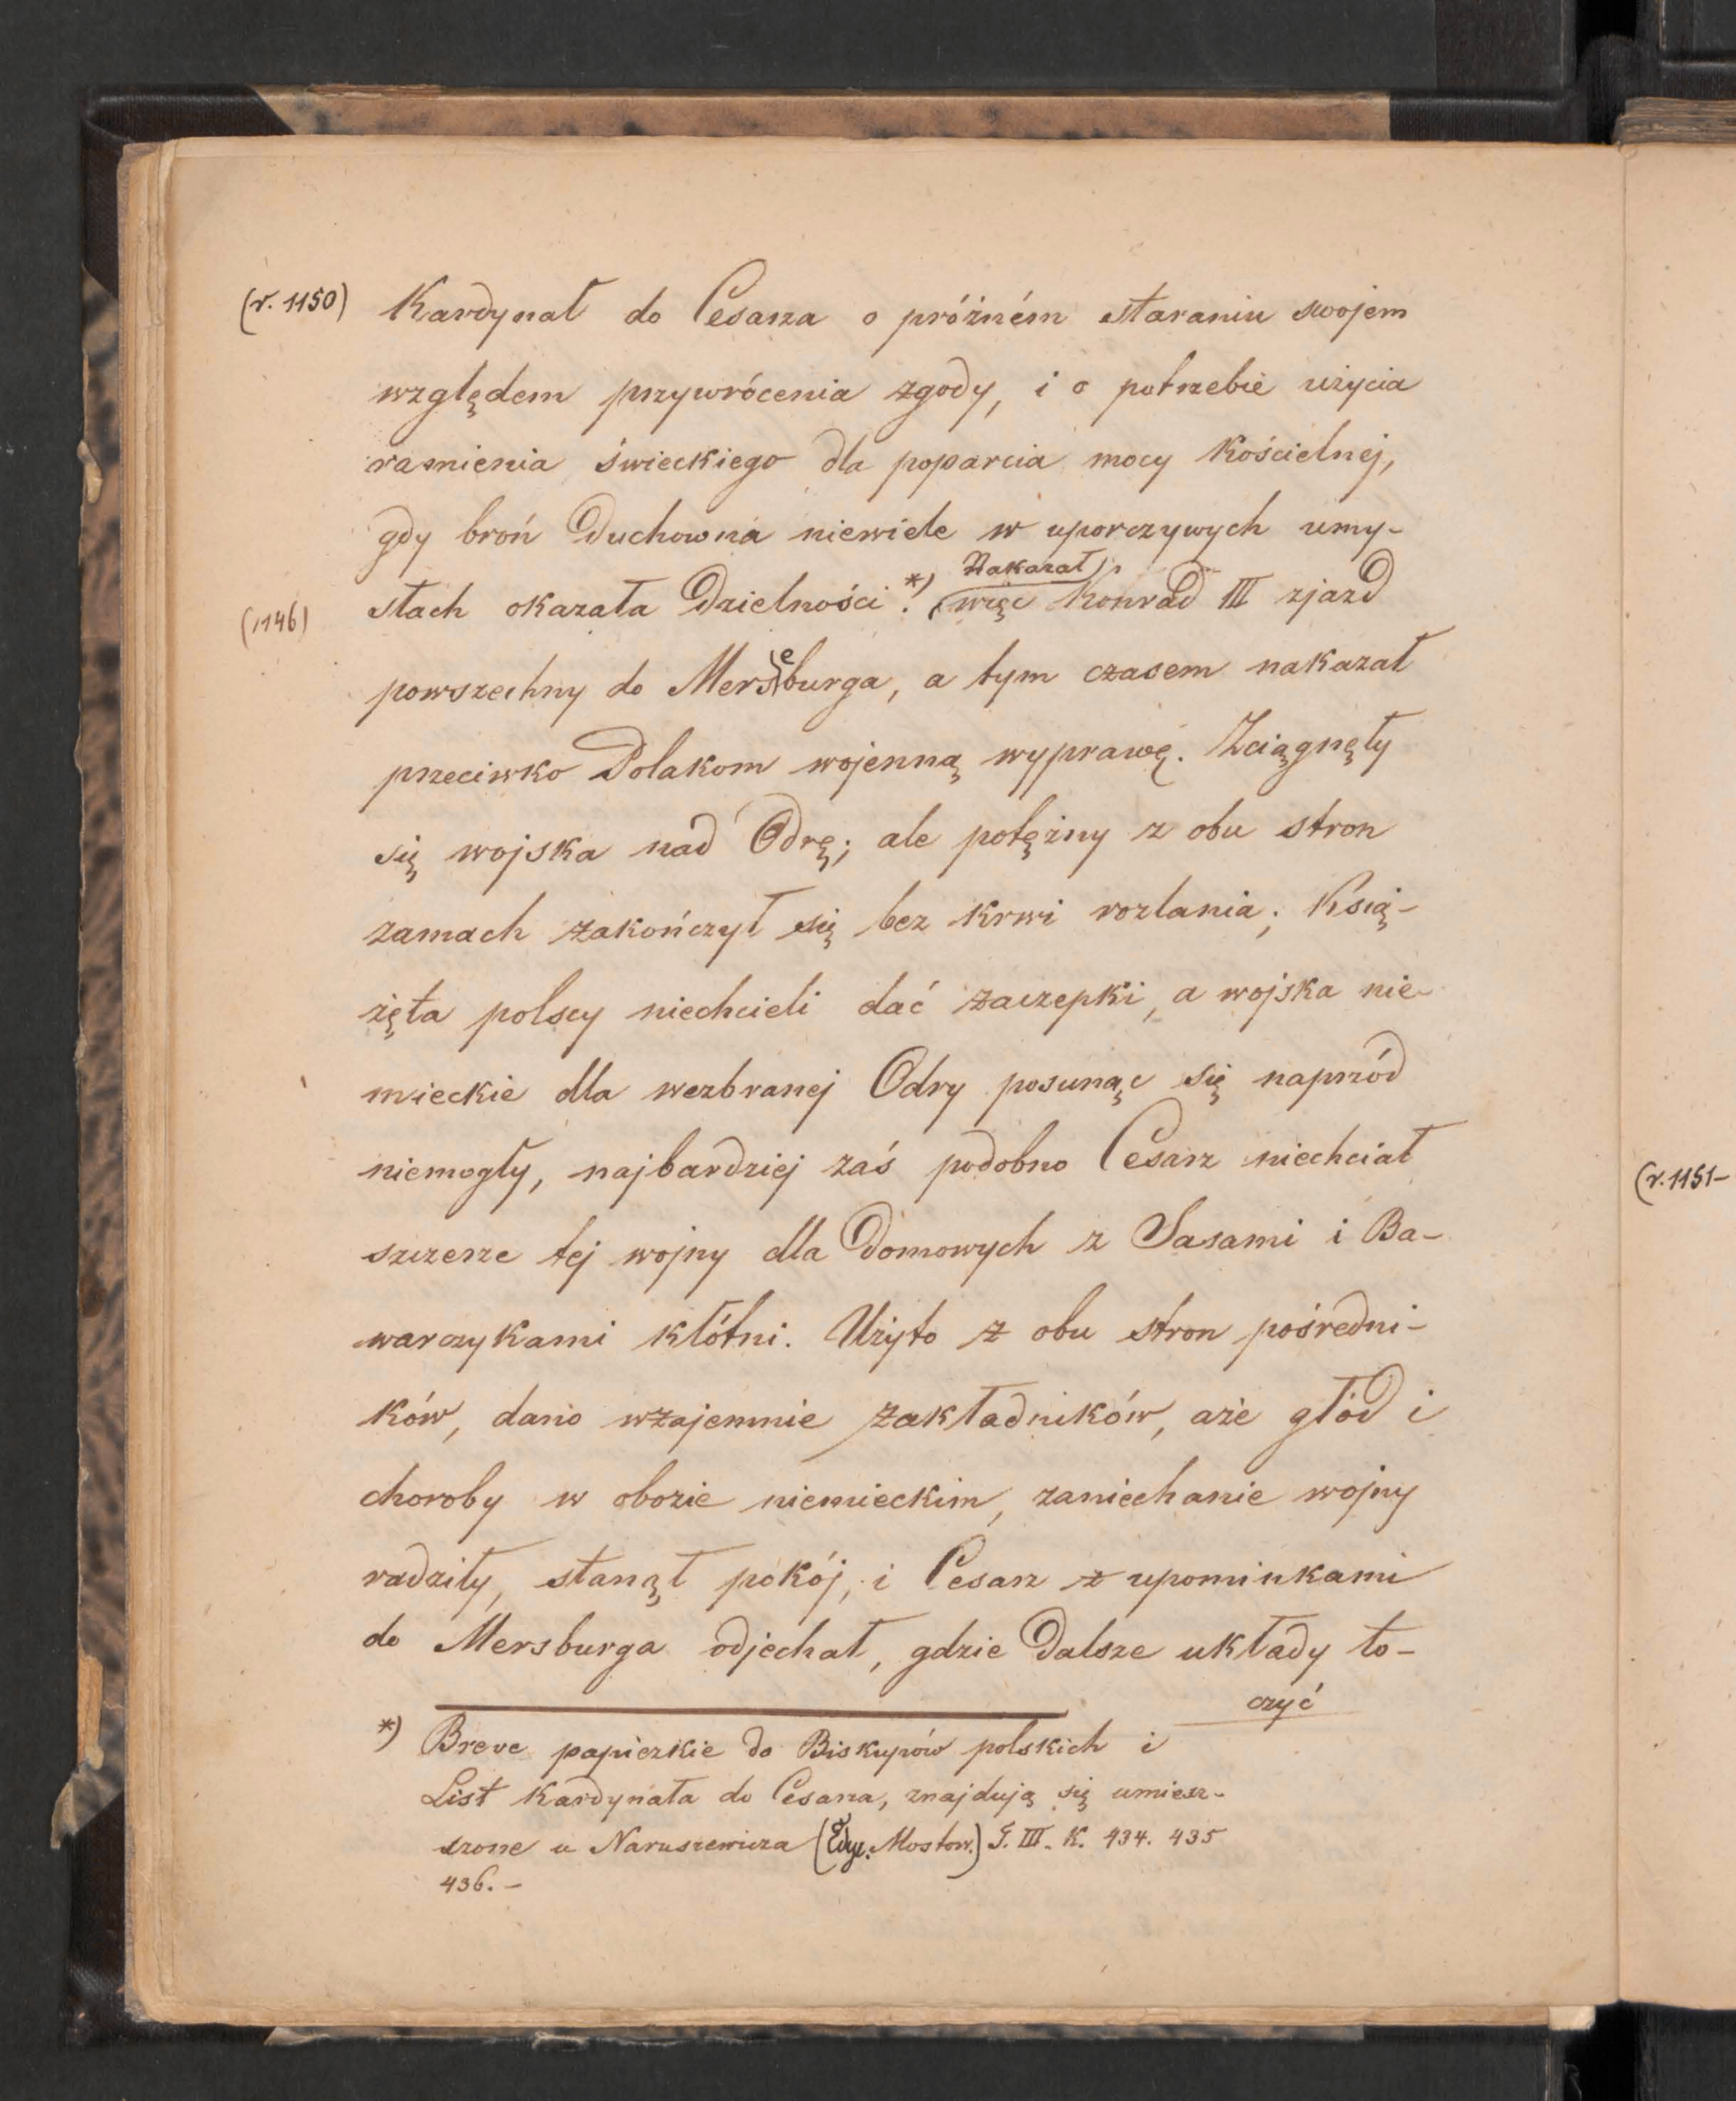 (r. 1150) Kardynał do Cesarza o próżném staraniu swojem
względem przywrócenia zgody, i o potrzebie użycia
ramienia świeckiego dla poparcia mocy Kościelnéj,
gdy broń Duchowna niewiele w uporczywych umy-
Nakazał
(1146) słach okazała Dzielności.*) więc Konrad III zjazd
powszechny do Merseburga, a tym czasem nakazał
przeciwko Polakom wojenną wyprawę. Zciągnęły
się wojska nad Odrę; ale potężny z obu stron
zamach zakończył się bez krwi rozlania; Ksią-
żęta polscy niechcieli dać zaczepki, a wojska nie-
mieckie dla wezbranej Odry posunąc się naprzód
niemogły, najbardziej zaś podobno Cesarz niechciał
szczerze tej wojny dla Domowych z Sasami i Ba-
warczykami kłótni. Użyto z obu stron pośredni-
ków, dano wzajemnie zakładników, aże głód i
choroby w obozie niemieckim, zaniechanie wojny
radziły, stanął pokój, i Cesarz z upominkami
do Mersburga odjechał, gdzie Dalsze układy to-
czyć
*) Breve papiezkie do Biskupów polskich i
List Kardynała do Cesarza, znajdują się umiesz-
szone u Naruszewicza (Edyc. Mostow.) T. III. K. 434. 435
436. -
(r. 1151-